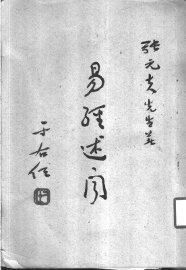 張元夫先生著
易經述聞
于右任